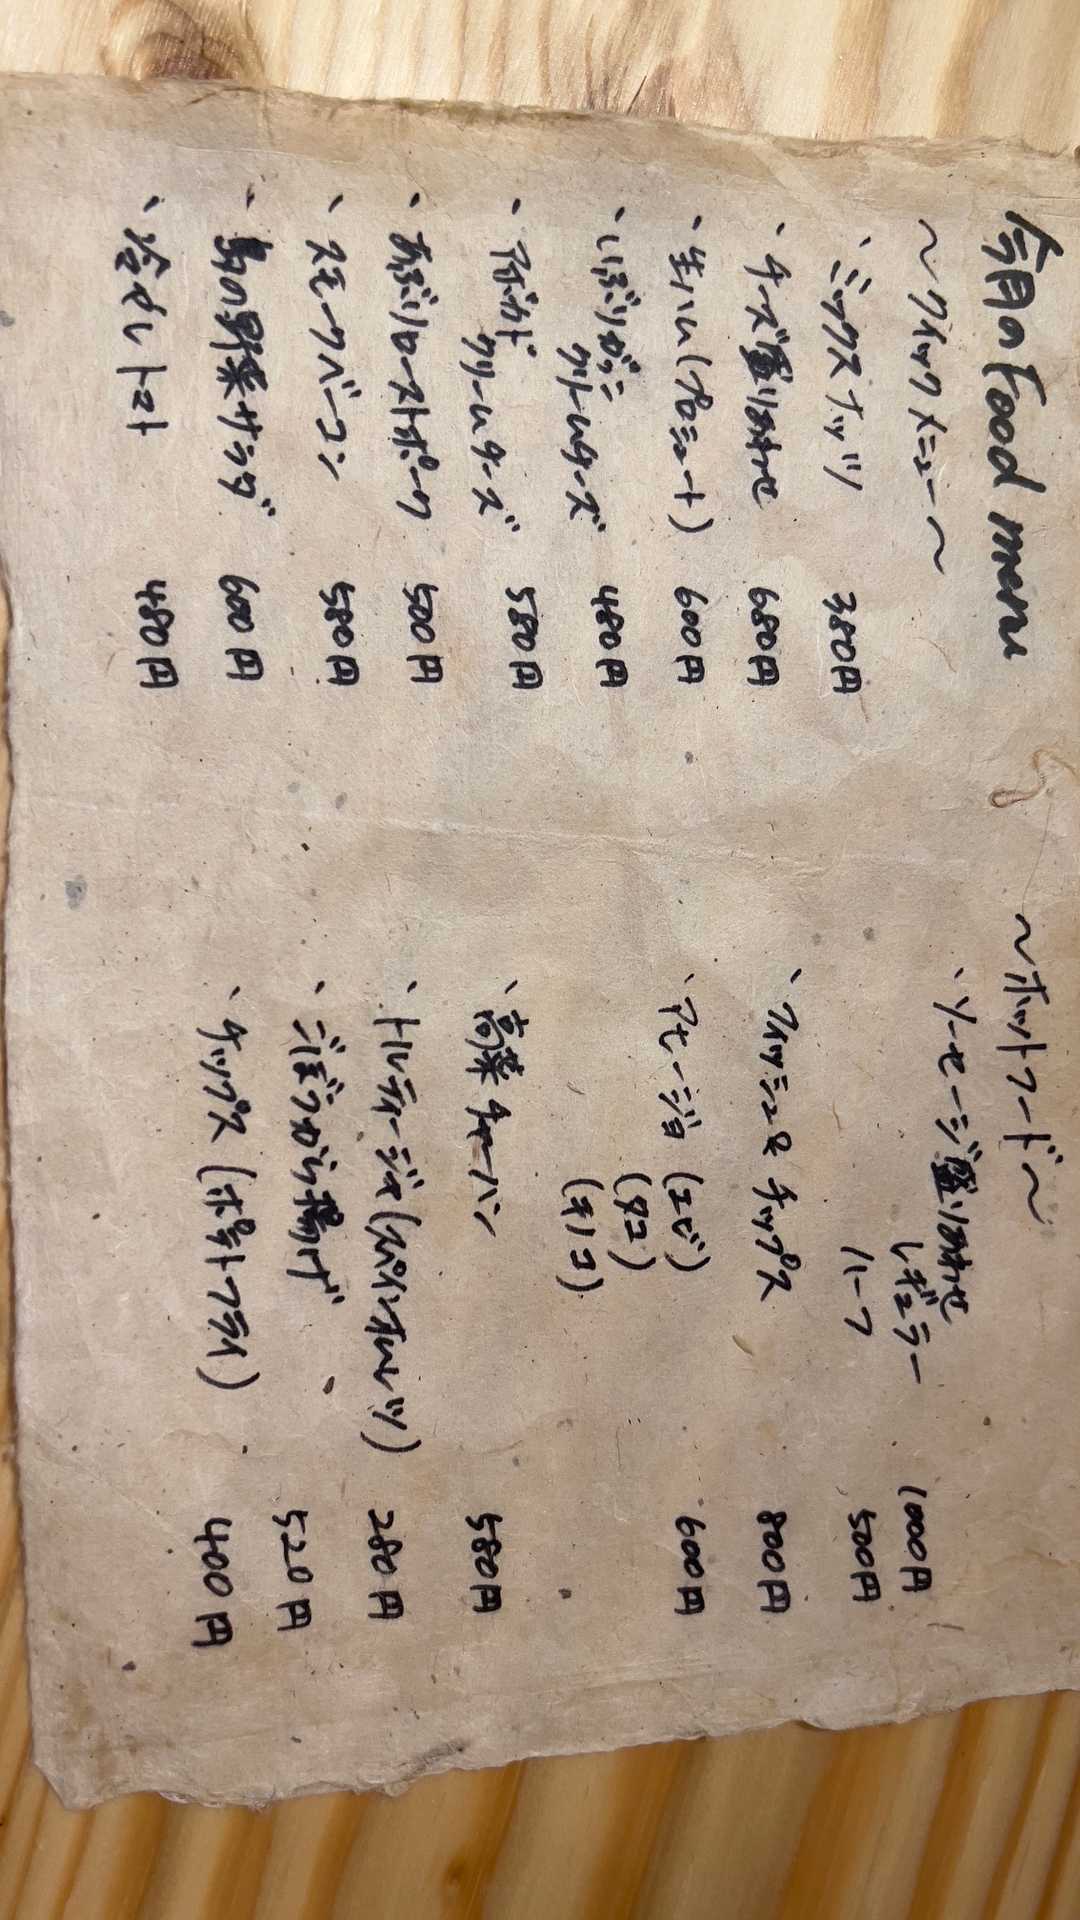 今月のFood menu
〜クイックメニュー〜
・ミックスナッツ 380円
・チーズ盛りあわせ 680円
・生ハム(プロシュート) 600円
・いぶりがっこ
クリームチーズ 480円
・アボカド
クリームチーズ 580円
・あぶりローストポーク 500円
・スモークベーコン 580円
・島の野菜サラダ 600円
・冷やしトマト 480円
〜ホットフード〜
・ソーセージ盛りあわせ
レギュラー 1000円
ハーフ 500円
・フィッシュ&チップス 800円
・アヒージョ(エビ) 600円
(タコ)
(キノコ)
・高菜チャーハン 580円
・トルティージャ(スパイシオムレツ) 280円
・ごぼうから揚げ 520円
・チップス(ポテトフライ) 400円